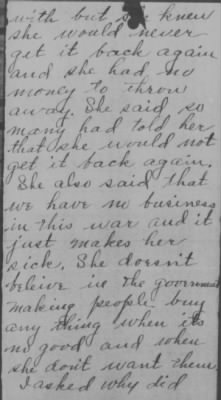 with but she knew
she would never
get it back again
and she had no
money to throw
away. She said so
many had told her
that she would not
get it back again.
She also said that
we have no business
in this war and it
just makes her
sick. She doesn't
beleive in the government
making people buy
any thing when its
no good and when
she dont want them.
I asked why did